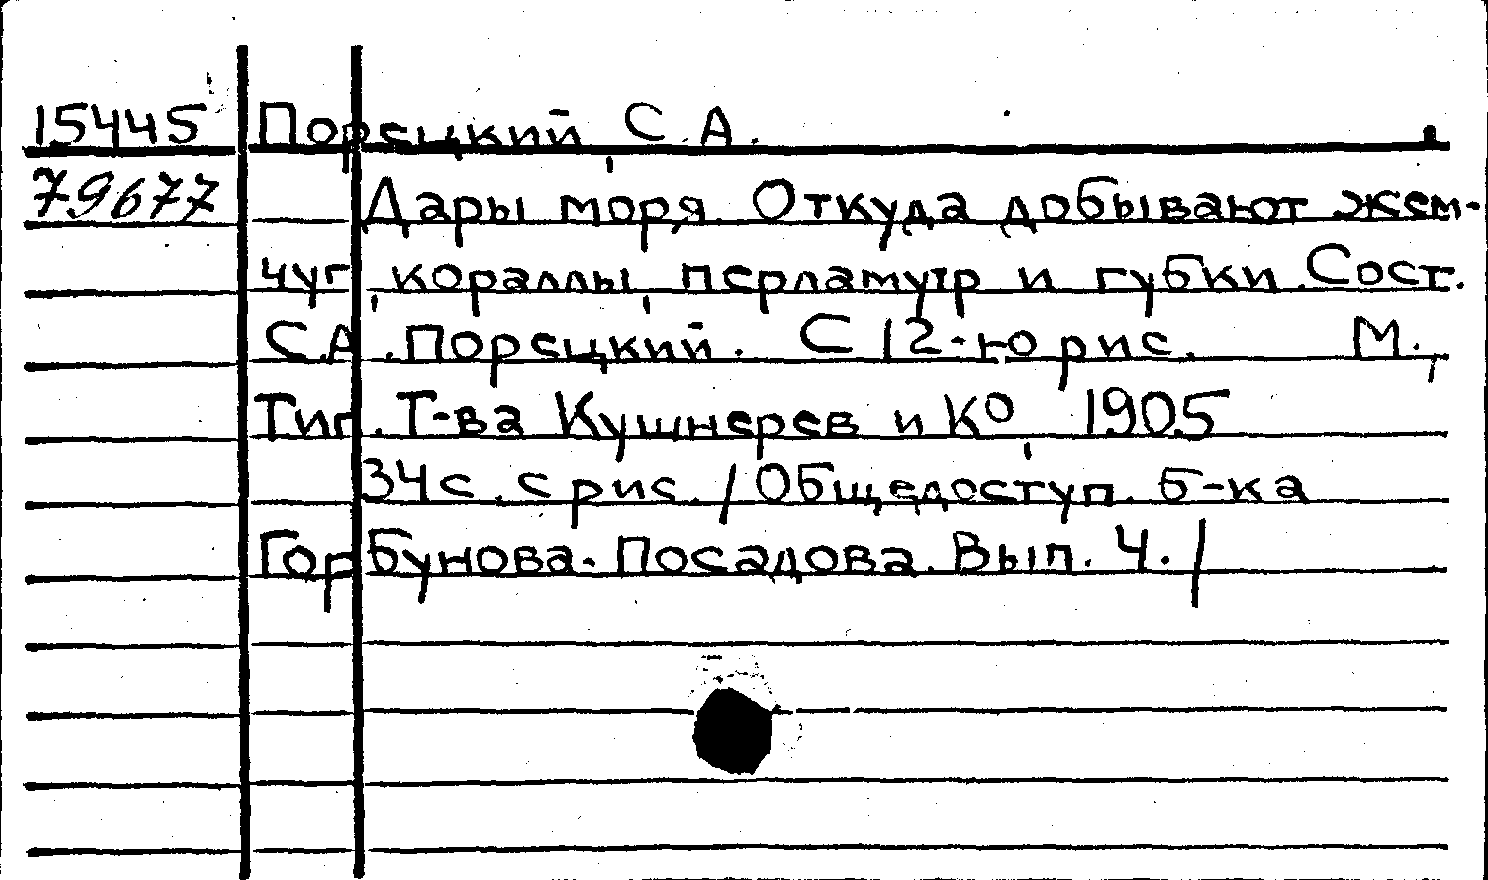 15445 Порецкий, С.А.
79677 Дары моря. Откуда добывают жем-
чуг, кораллы, перламутр и губки. Сост.
С.А. Порецкий. С 12-ю рис. М.,
Тип. Т-ва Кушнерев и К°, 1905
34 с. с рис. /Общедоступ. б-ка
Горбунова-Посадова. Вып. 4./